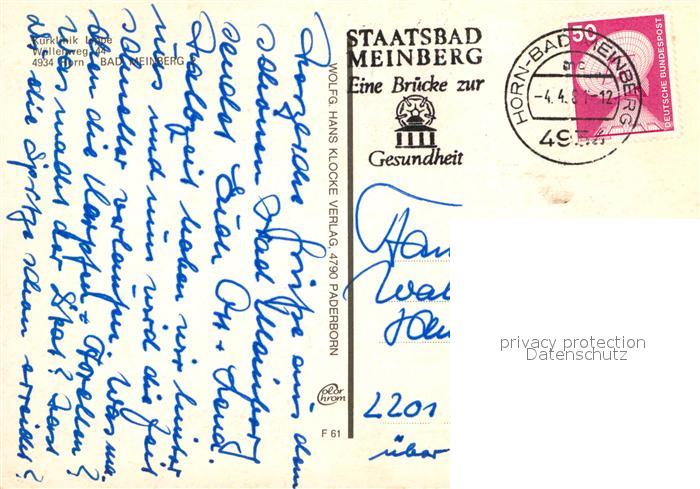 Kurklinik Lippe
Wällenweg 44
4934 Horn - BAD MEINBERG 2
Herzliche Grüße aus dem
schönen Bad Meinberg
sendet Euch Ott + Gerd.
Halbzeit haben wir hinter
uns und nun wird die Zeit
schneller verlaufen. Was ma-
chen die Karpfen + Forellen?
was macht der Skat? Fast
die Spitze schon erreicht?
WOLFG. HANS KLOCKE VERLAG, 4790 PADERBORN
color
chrom
F 61
STAATSBAD
MEINBERG
Eine Brücke zur
Gesundheit
HORN-BAD MEINBERG
-4.4.8 -12
50
DEUTSCHE BUNDESPOST
2201
über
privacy protection
Datenschutz